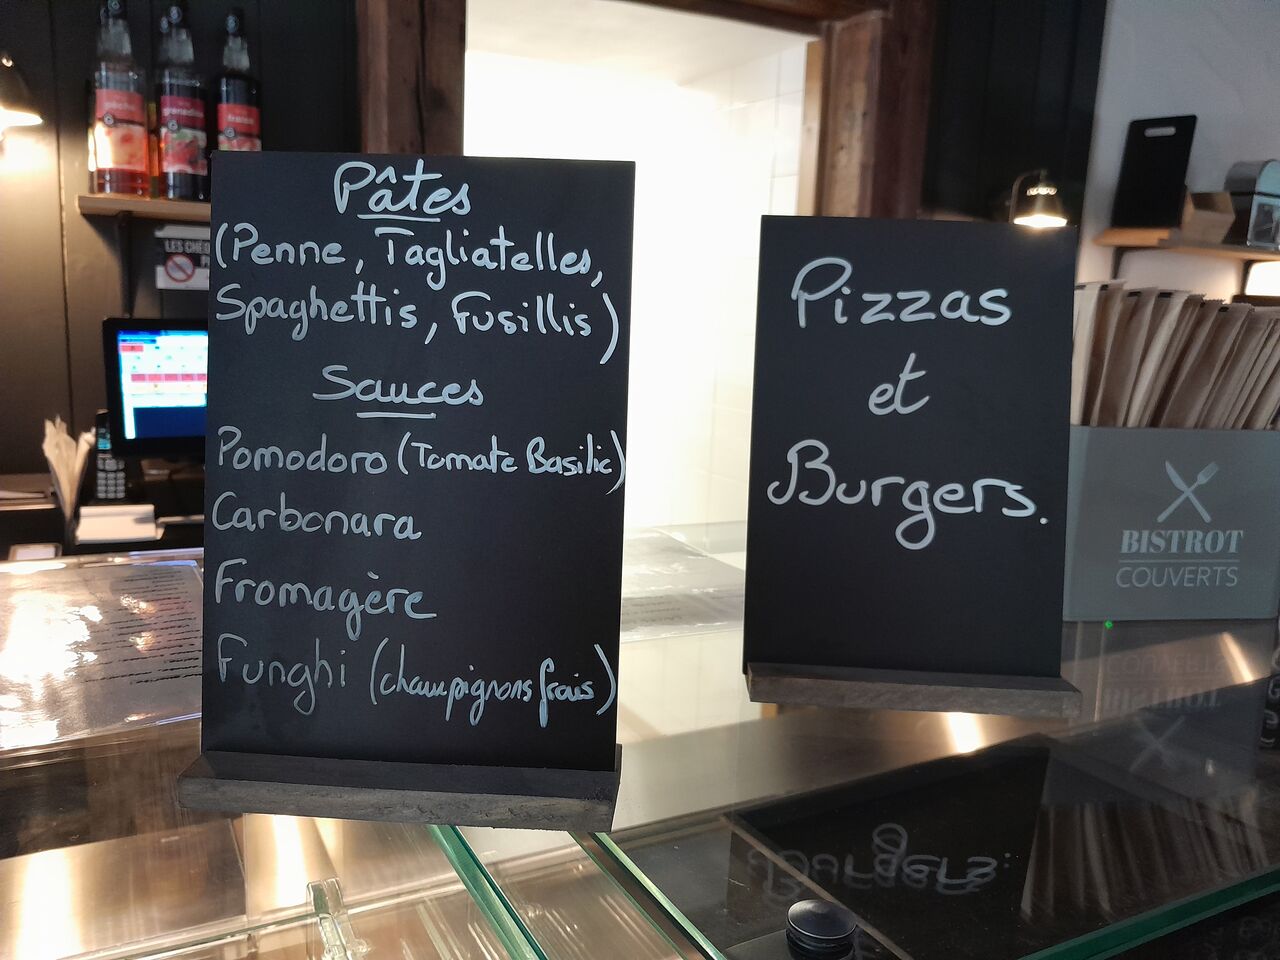 Pâtes
(Penne, Tagliatelles,
Spaghettis, Fusillis)
Sauces
Pomodoro (Tomate Basilic)
Carbonara
Fromagère
Funghi (champignons frais)
Pizzas
et
Burgers.
BISTROT
COUVERTS
pêche
grenadine
fraise